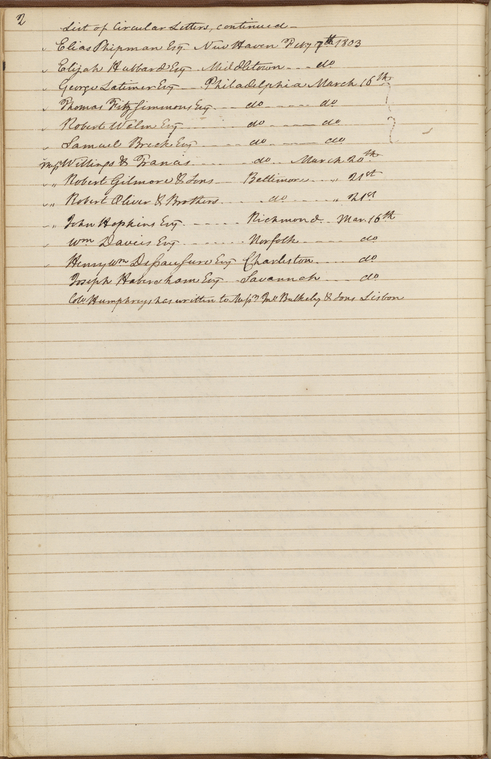 2
List of Circular Letters, continued -
" Elias Shipman Esq New Haven Feby 7th 1803
" Elijah Hubbard Esq Middletown - - - do
" George Latimer Esq - - Philadelphia March 16th
" Thomas Fitzsimmons Esq - - do - - - - do
" Robert Waln Esq - - - - - do - - - - do
" Samuel Breck Esq - - - - do - - - - do
Messrs Willings & Francis - - - - - do - - March 20th
" " Robert Gilmore & Sons - - Baltimore - - " 21st
" " Robert Oliver & Brothers - - - do - - - - " 21st
" John Hopkins Esq - - - - - - Richmond - Mar. 16th
" Wm Davies Esq - - - - - - Norfolk - - - - do
" Henry Wm DeSaussure Esq Charleston - - - - do
" Joseph Habersham Esq Savannah - - - - do
Colo Humphreys has written to Messrs Jno Bulkeley & Sons Lisbon